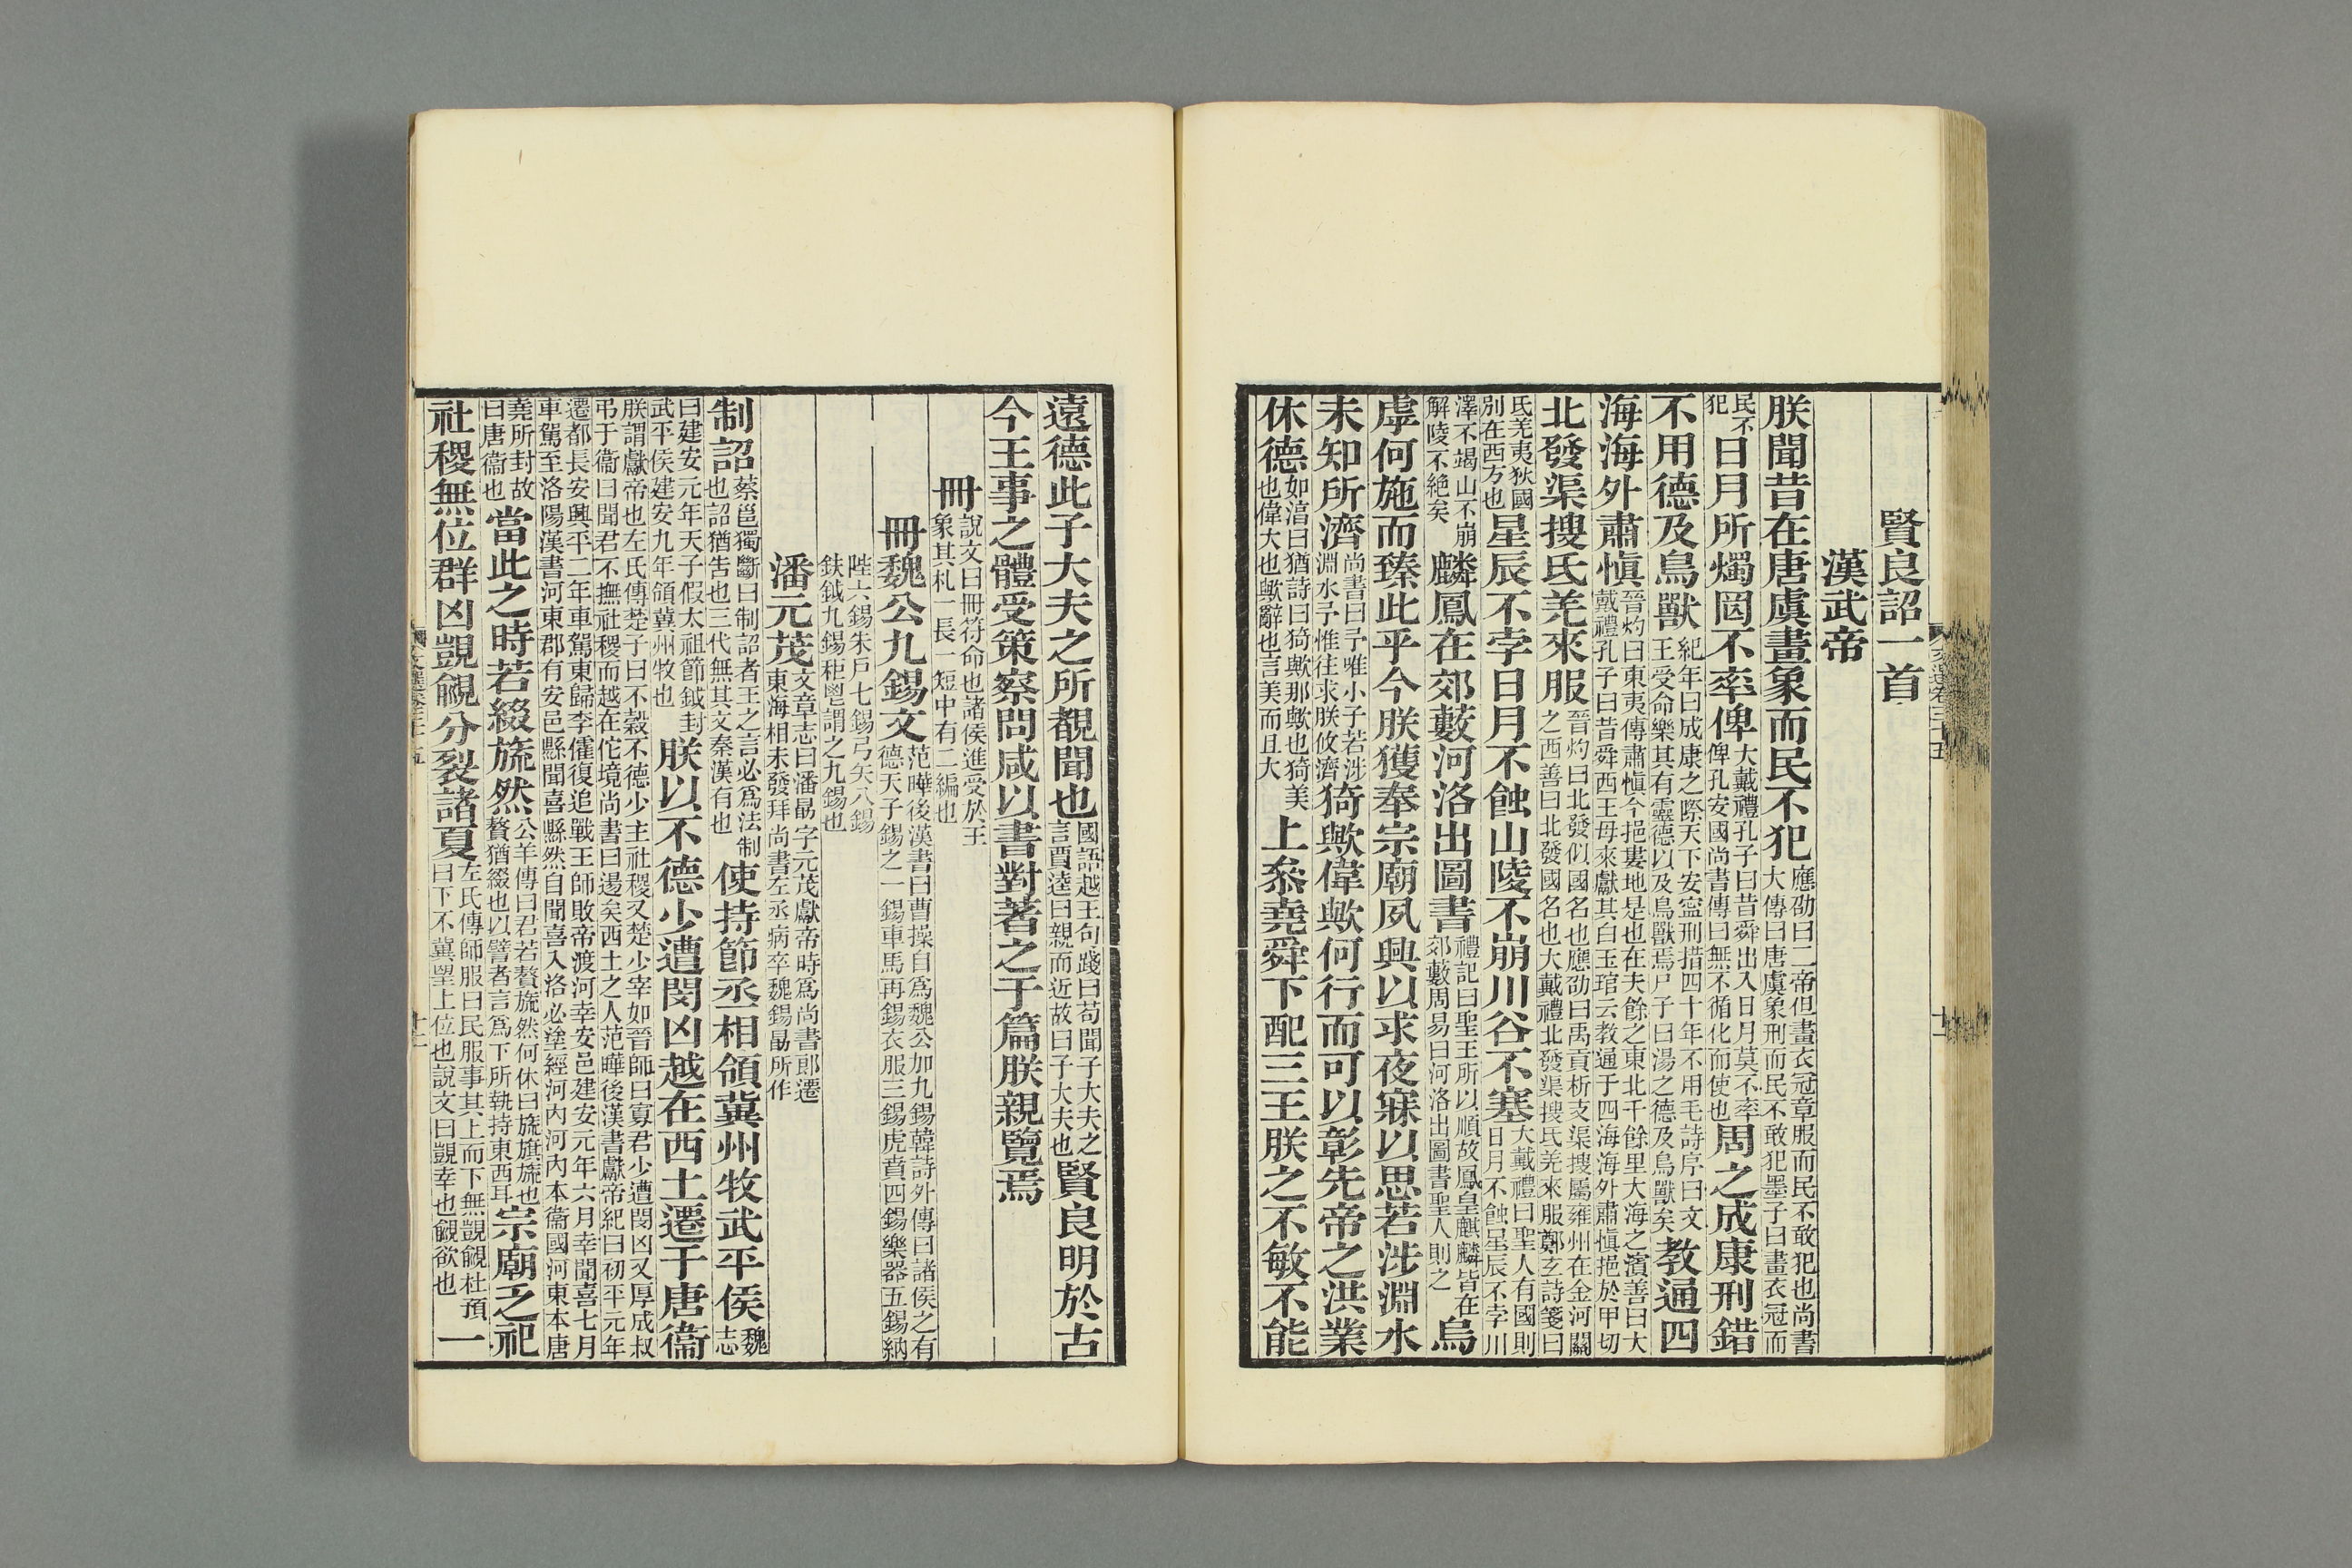 賢良詔一首
漢武帝
朕聞昔在唐虞畫象而民不犯應劭曰二帝但畫衣冠章服而民不敢犯也尚書大傳曰唐虞象刑而民不敢犯墨子曰畫衣冠而
民不犯日月所燭罔不率俾大戴禮孔子曰昔舜出入日月莫不率俾孔安國尚書傳曰無不循化而使也周之成康刑錯
不用德及鳥獸紀年曰成康之際天下安寍刑措四十年不用毛詩序曰文王受命樂其有靈德以及鳥獸焉尸子曰湯之德及鳥獸矣教通四
海海外肅愼晉灼曰東夷傳肅愼今挹婁地是也在夫餘之東北千餘里大海之濱善曰大戴禮孔子曰昔舜西王母來獻其白玉琯云教通于四海海外肅愼挹於甲切
北發渠搜氐羌來服晉灼曰北發似國名也應劭曰禹貢析支渠搜屬雍州在金河關之西善曰北發國名也大戴禮北發渠搜氐羌來服鄭玄詩箋曰
氐羌夷狄國別在西方也星辰不孛日月不蝕山陵不崩川谷不塞大戴禮曰聖人有國則日月不蝕星辰不孛川
澤不竭山不崩解陵不絶矣麟鳳在郊藪河洛出圖書禮記曰聖王所以順故鳳皇麒麟皆在郊藪周易曰河洛出圖書聖人則之烏
虖何施而臻此乎今朕獲奉宗廟夙興以求夜寐以思若涉淵水
未知所濟尚書曰予唯小子若涉淵水予惟往求朕攸濟猗歟偉歟何行而可以彰先帝之洪業
休德如淳曰猶詩曰猗歟那歟也猗美也偉大也歟辭也言美而且大上叅堯舜下配三王朕之不敏不能
遠德此子大夫之所覩聞也國語越王句踐曰苟聞子大夫之言賈逵曰親而近故曰子大夫也賢良明於古
今王事之體受策察問咸以書對著之于篇朕親覽焉
冊說文曰冊符命也諸侯進受於王象其札一長一短中有二編也
冊魏公九錫文范曄後漢書曰曹操自爲魏公加九錫韓詩外傳曰諸侯之有德天子錫之一錫車馬再錫衣服三錫虎賁四錫樂器五錫納
陛六錫朱戶七錫弓矢八錫鈇鉞九錫秬鬯謂之九錫也
潘元茂文章志曰潘勗字元茂獻帝時爲尚書郎遷東海相未發拜尚書左丞病卒魏錫勗所作
制詔蔡邕獨斷曰制詔者王之言必爲法制也詔猶吿也三代無其文秦漢有也使持節丞相領冀州牧武平侯魏志
曰建安元年天子假太祖節鉞封武平侯建安九年領冀州牧也朕以不德少遭閔凶越在西土遷于唐衞
朕謂獻帝也左氏傳楚子曰不穀不德少主社稷又楚少宰如晉師曰寡君少遭閔凶又厚成叔弔于衞曰聞君不撫社稷而越在佗境尚書曰逷矣西土之人范曄後漢書獻帝紀曰初平元年
遷都長安興平二年車駕東歸李傕復追戰王師敗帝渡河幸安邑建安元年六月幸聞喜七月車駕至洛陽漢書河東郡有安邑縣聞喜縣然自聞喜入洛必塗經河內河內本衞國河東本唐
堯所封故曰唐衞也當此之時若綴旒然公羊傳曰君若贅旒然何休曰旒旗旒也贅猶綴也以譬者言爲下所執持東西耳宗廟乏祀
社稷無位群凶覬覦分裂諸夏左氏傳師服曰民服事其上而下無覬覦杜預曰下不冀朢上位也說文曰覬幸也覦欲也一